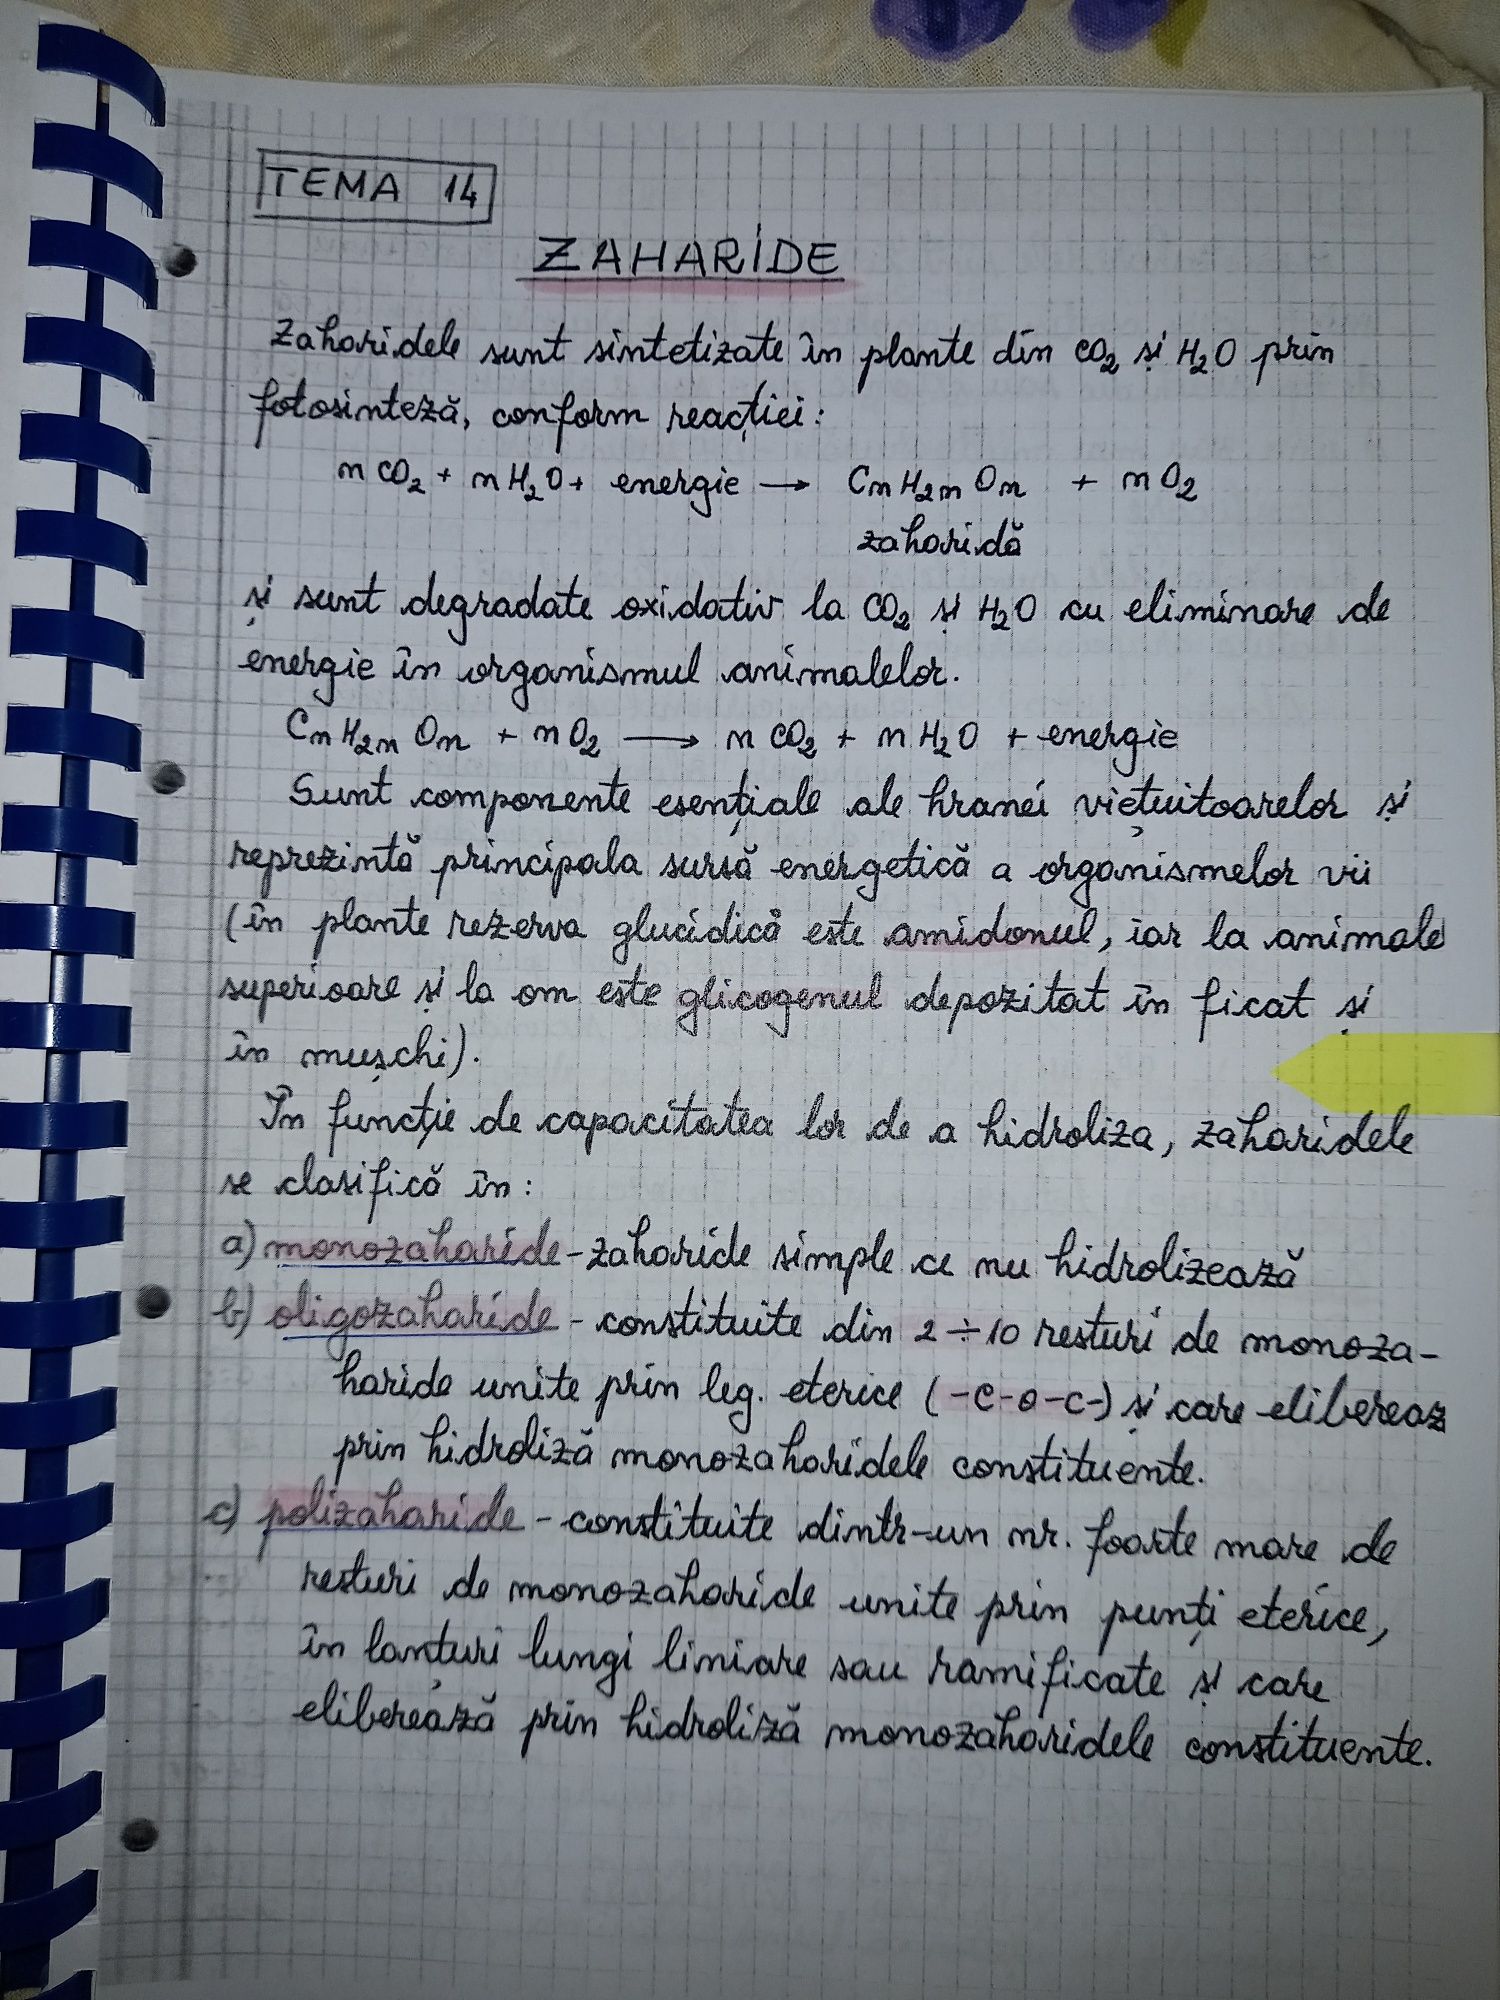 TEMA 14
ZAHARIDE
Zaharidele sunt sintetizate în plante din CO₂ și H₂O prin
fotosinteză, conform reacției:
n CO₂ + n H₂O + energie → CnH2nOn + n O₂
zaharidă
și sunt degradate oxidativ la CO₂ și H₂O cu eliminare de
energie în organismul animalelor.
CnH2nOn + n O₂ → n CO₂ + n H₂O + energie
Sunt componente esențiale ale hranei viețuitoarelor și
reprezintă principala sursă energetică a organismelor vii
(în plante rezerva glucidică este amidonul, iar la animale
superioare și la om este glicogenul depozitat în ficat și
în mușchi).
În funcție de capacitatea lor de a hidroliza, zaharidele
se clasifică în:
a) monozaharide - zaharide simple ce nu hidrolizează
b) oligozaharide - constituite din 2 ÷ 10 resturi de monoza-
haride unite prin leg. eterice (-C-O-C-) și care eliberează
prin hidroliză monozaharidele constituente.
c) polizaharide - constituite dintr-un nr. foarte mare de
resturi de monozaharide unite prin punți eterice,
în lanțuri lungi liniare sau ramificate și care
eliberează prin hidroliză monozaharidele constituente.